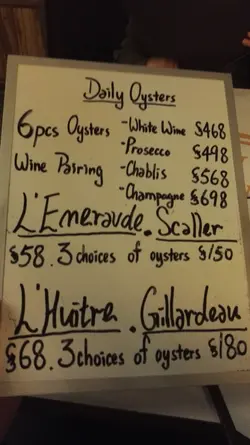 Daily Oysters
6pcs Oysters -White Wine $468
-Prosecco $498
Wine Pairing -Chablis $568
-Champagne $698
L'Emeraude. Scaller
$58. 3 choices of oysters $150
L'Huitre. Gillardeau
$68. 3 choices of oysters $180